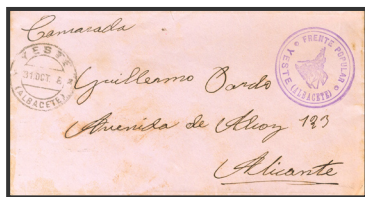 Camarada
YESTE
31 OCT
(ALBACETE)
FRENTE POPULAR
YESTE (ALBACETE)
Guillermo Pardo
Avenida de Alcoy 123
Alicante